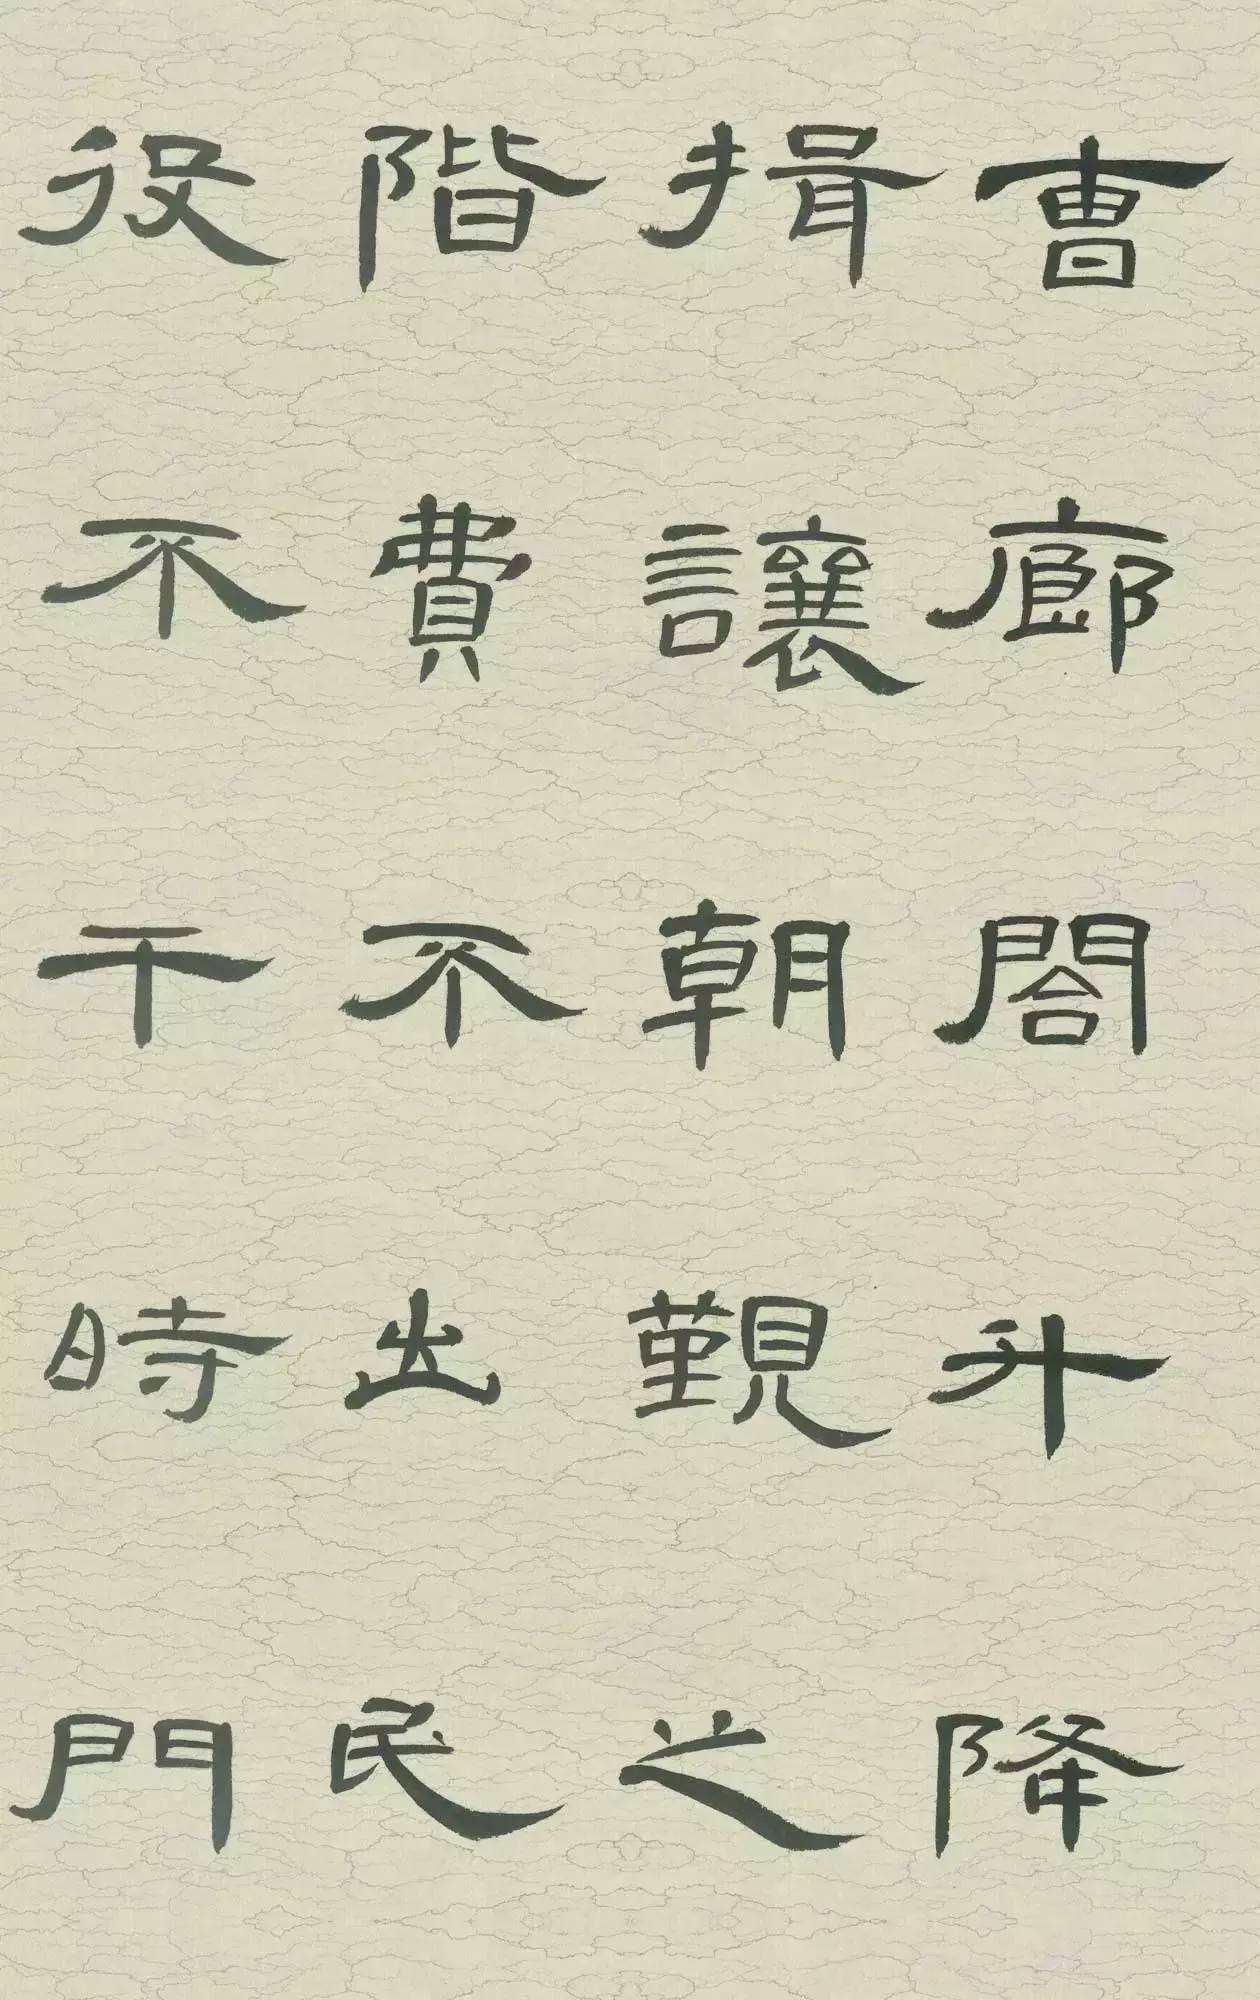 曹廊閣升降
揖讓朝覲之
階費不出民
役不干時門